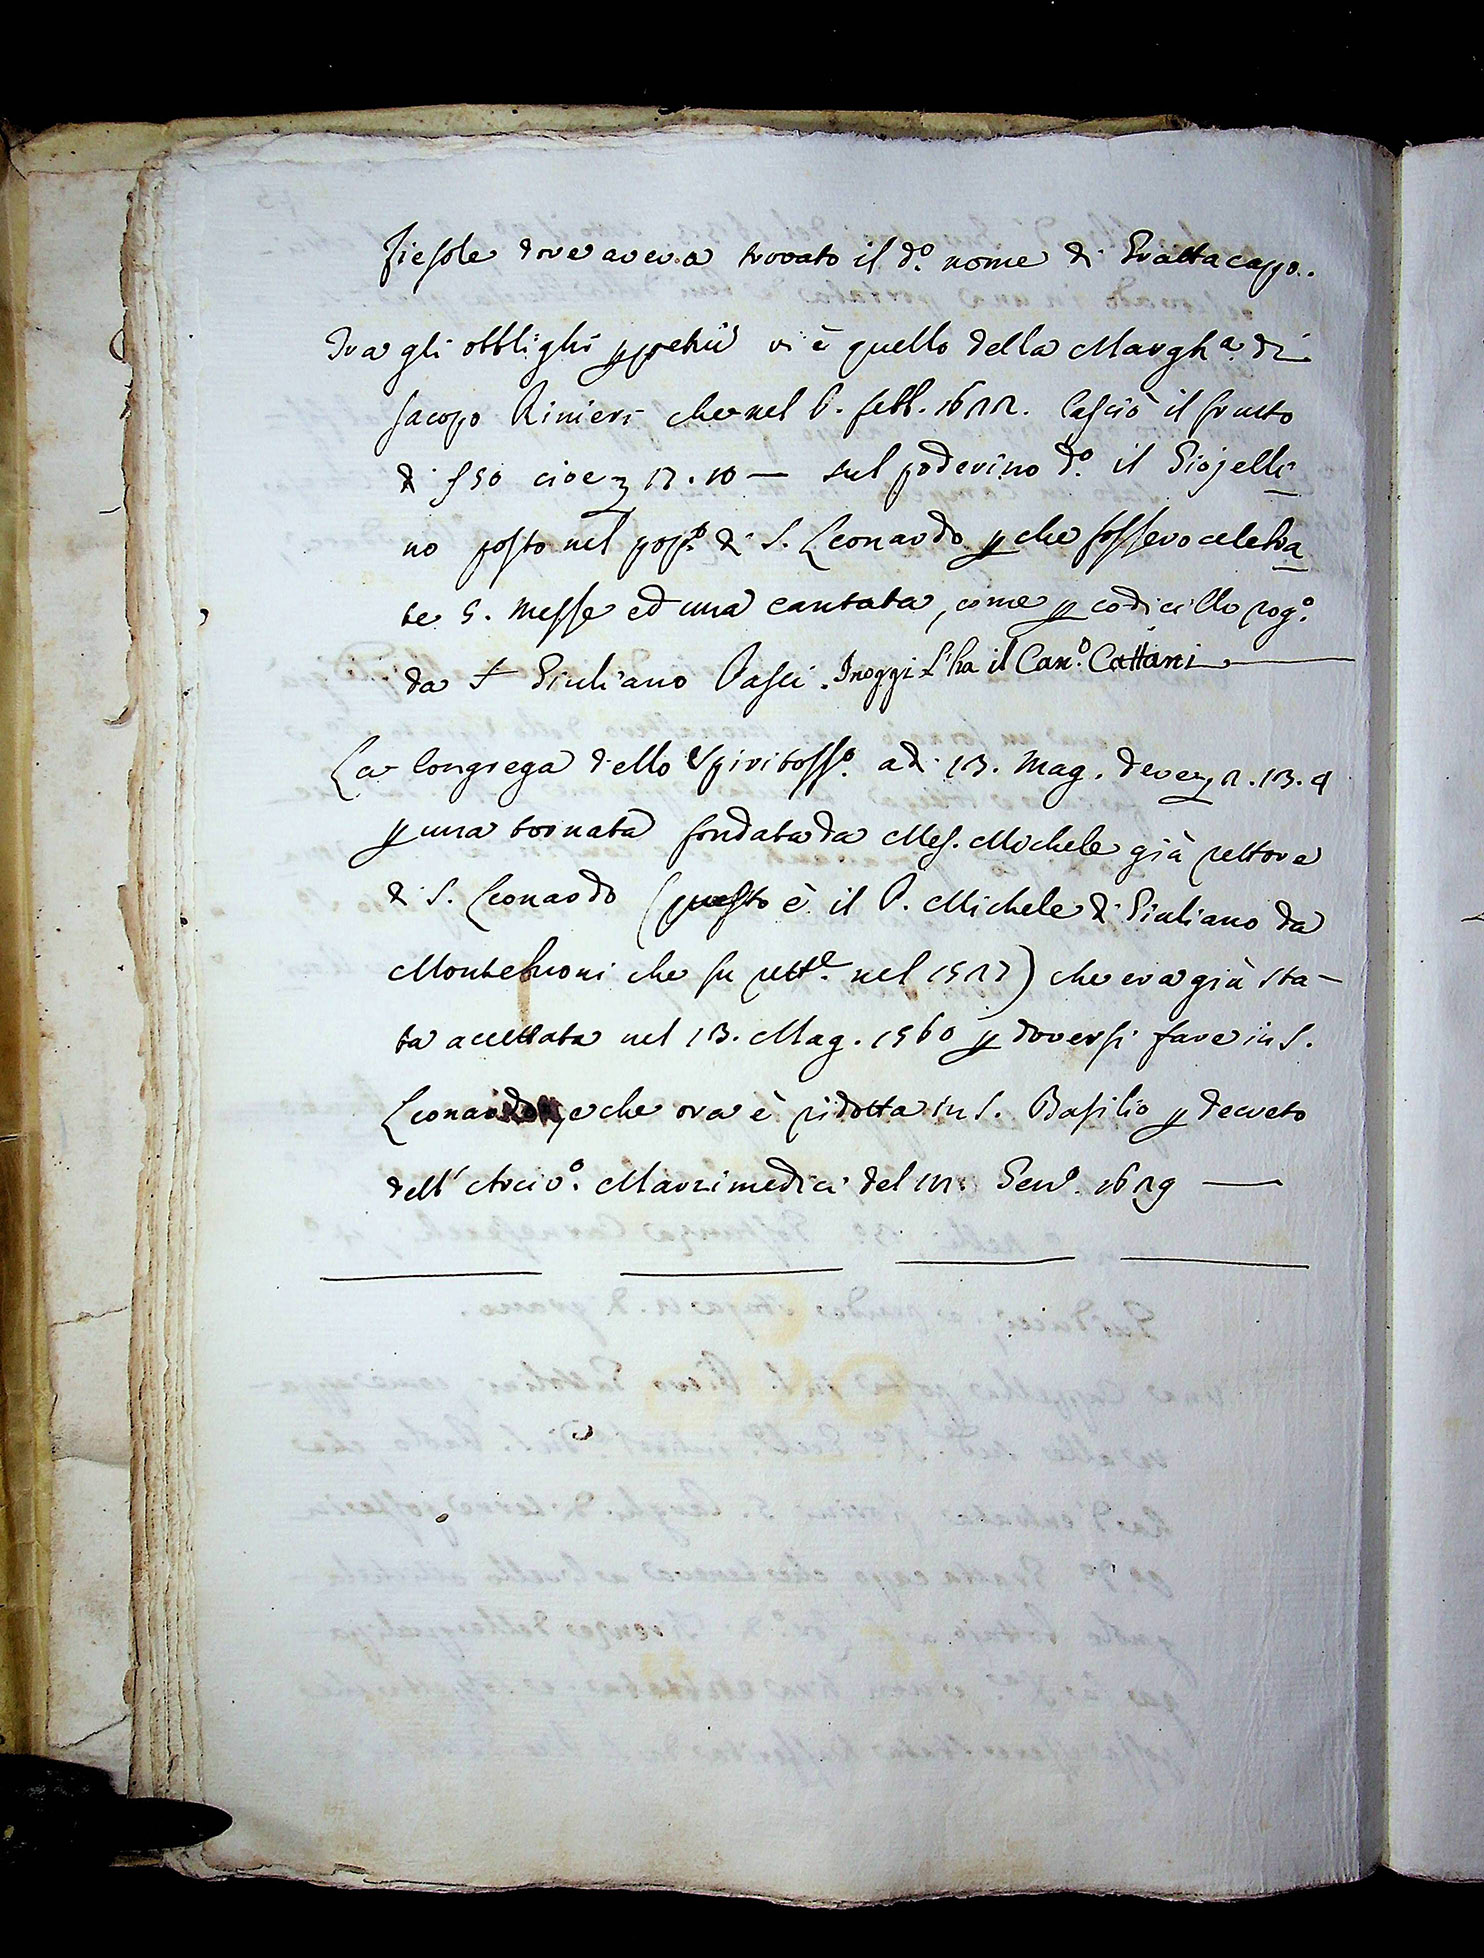 Fiesole dove aveva trovato il d.º nome di Grattacapo.
Fra gli obblighi ppetui vi è quello della Margh.ª di
Jacopo Rinieri che nel 6. febb. 1622. lasciò il frutto
di f 50 cioe 17.10 — sul poderino d.º il Giojelli
no posto nel pop.º di S. Leonardo p che fossero celebra
te 5. messe ed una cantata, come p codicillo rog.º
da S. Giuliano Pasci. Inoggi l'ha il Can.º Cattani
La Congrega dello Spiritoss.º adi 13. Mag. deve 2.13.4
p una tornata fondata da Mes. Michele già rettore
di S. Leonardo (questo è il P. Michele di Giuliano da
Montebuoni che fu rett.e nel 1527) che era già sta-
ta accettata nel 13. Mag. 1560 p doversi fare in S.
Leonardo, e che ora è ridotta in S. Basilio p decreto
dell' Arciv.º Marzimedici del Gen.º 1629